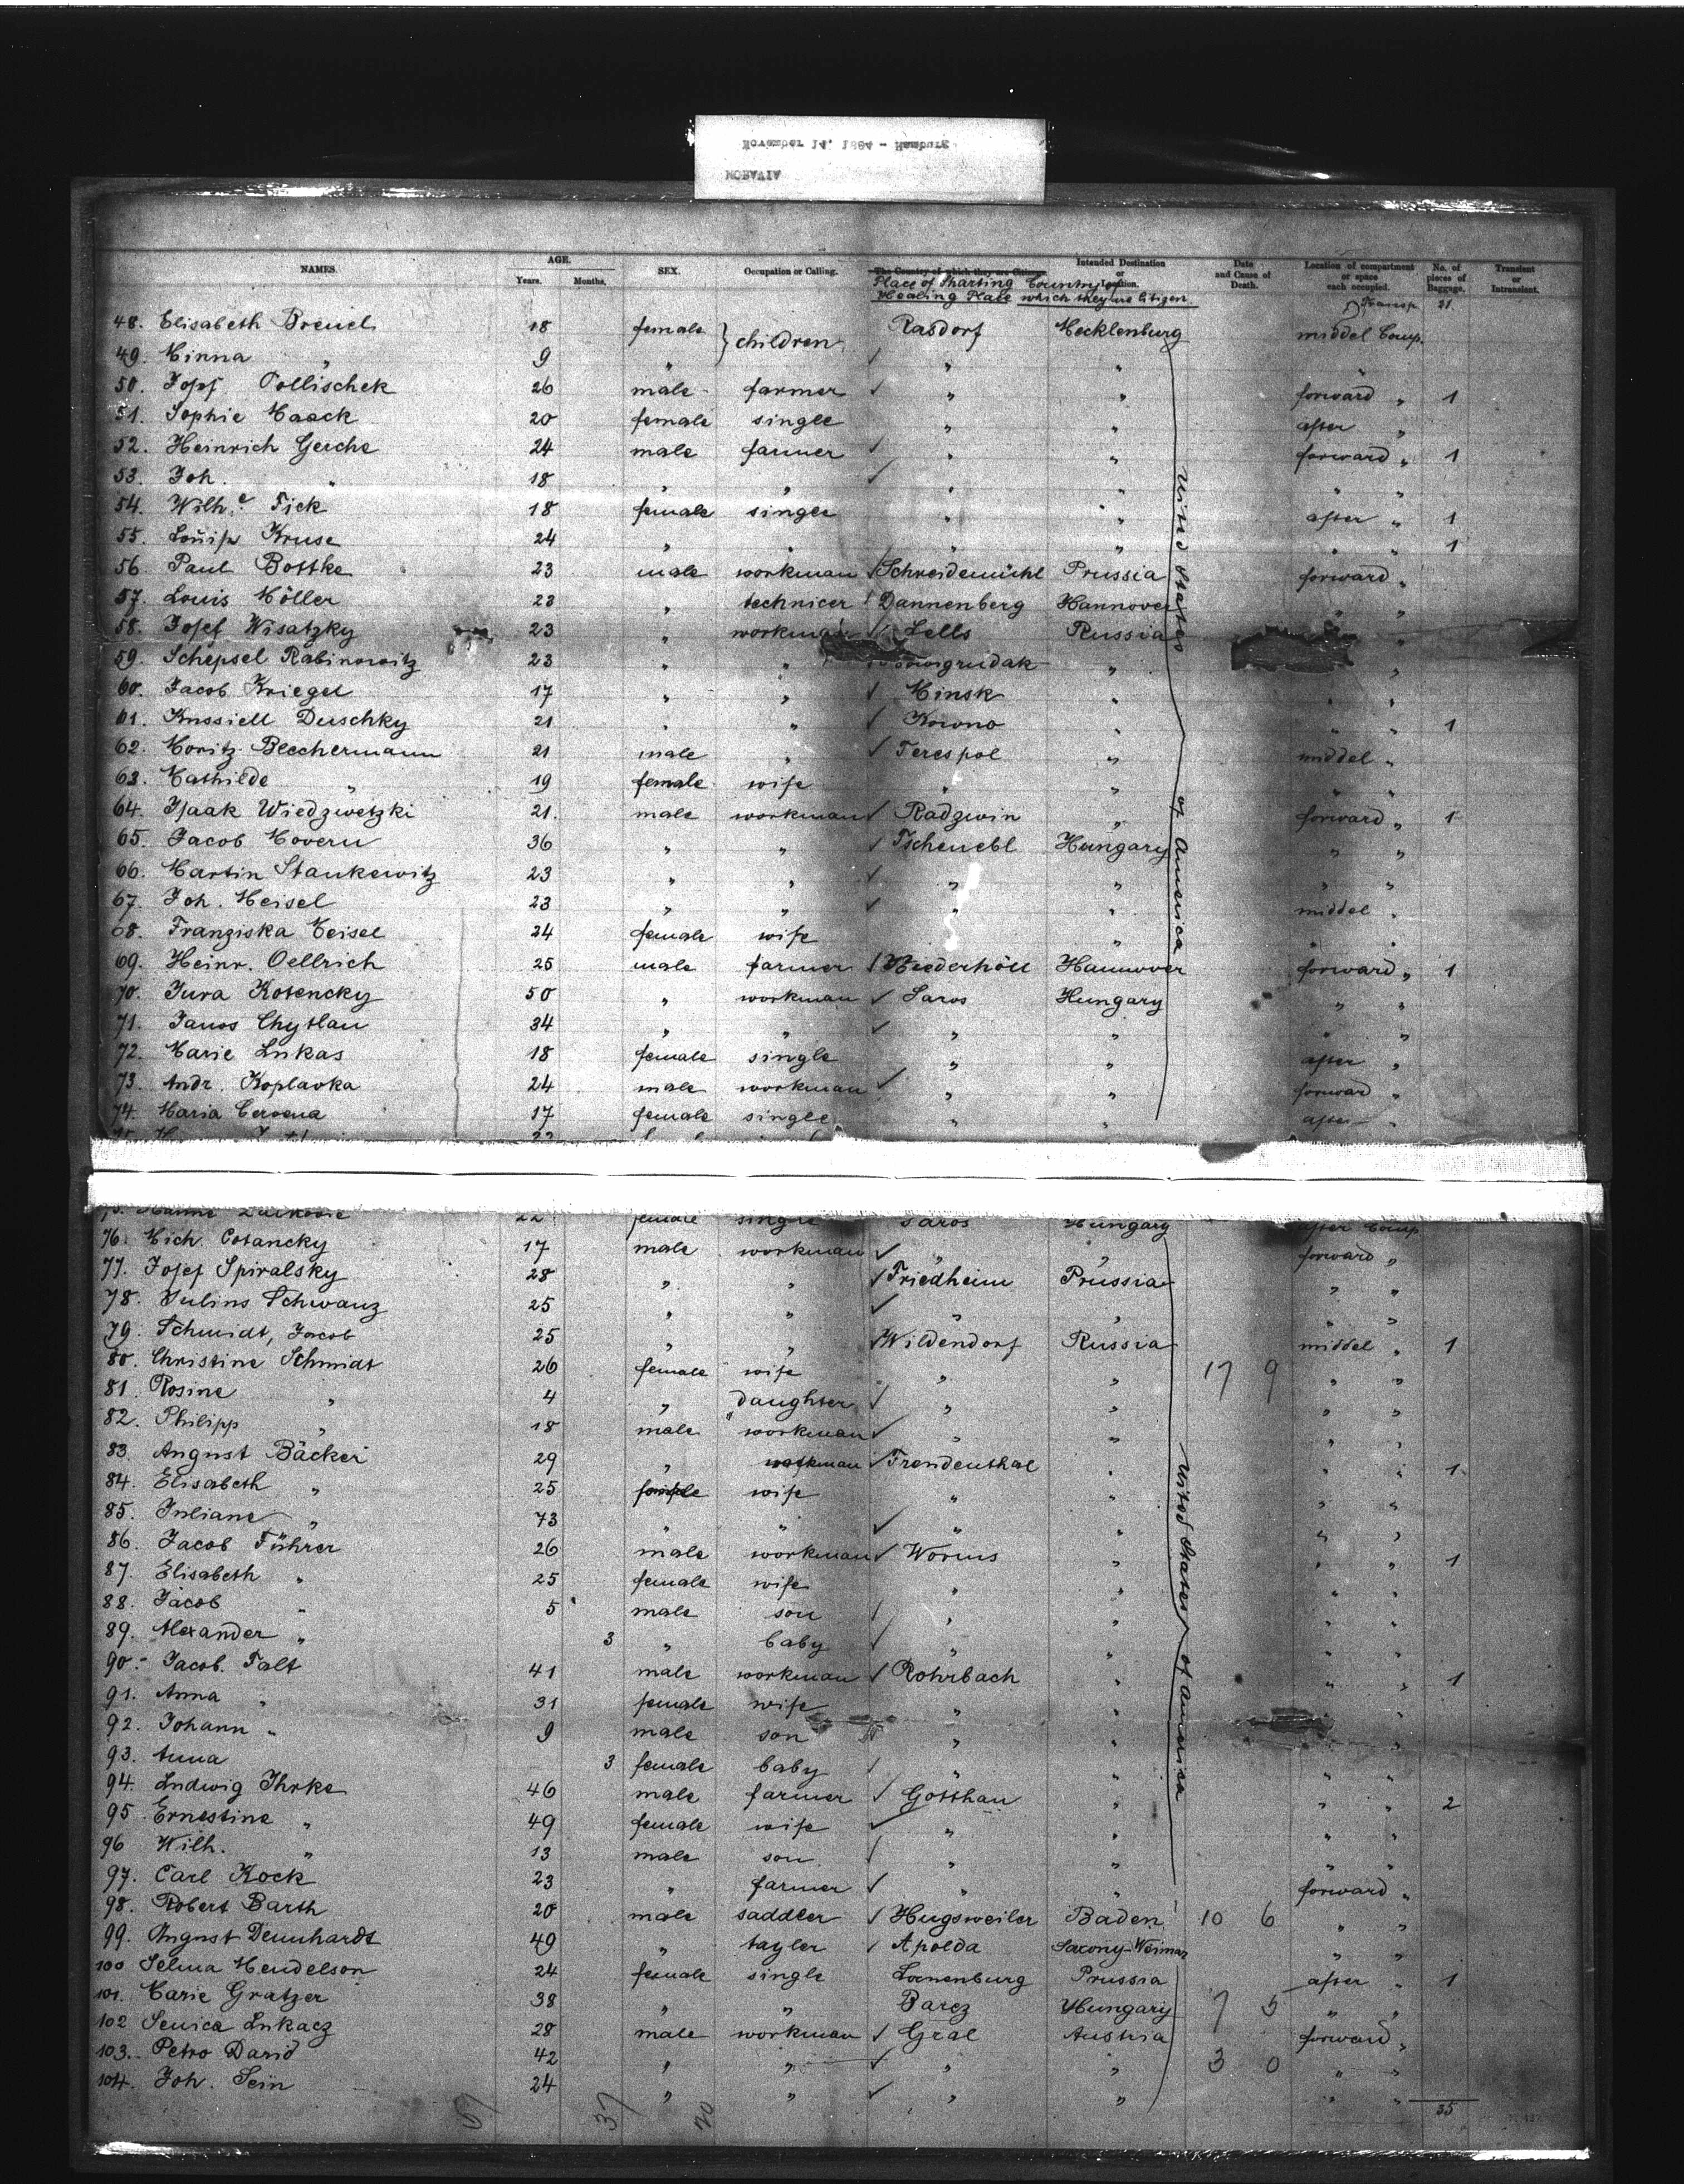 November 14, 1884 - Hamburg
MORAVIA
NAMES. AGE. Years. Months. SEX. Occupation or Calling. The Country of which they are Citizens. Intended Destination or Location. Date and Cause of Death. Location of compartment or space each occupied. No. of pieces of Baggage. Transient or Intransient.
Place of Starting Country of
Healing Place which they are Citizen.
Transp. 21.
48. Elisabeth Breuel 18 female } children Rasdorf Mecklenburg middel Comp.
49. Minna " 9 " ✓ " " "
50. Josef Pollischek 26 male farmer ✓ " " forward " 1
51. Sophie Maack 20 female single " " after "
52. Heinrich Gerche 24 male farmer ✓ " " forward " 1
53. Joh. " 18 " " ✓ " " " "
54. Wilh.e Fick 18 female single " " after " 1
55. Louise Kruse 24 " " " " " " 1
56. Paul Bottke 23 male workman ✓ Schneidemühl Prussia forward "
57. Louis Möller 23 " technicer ✓ Dannenberg Hannover " "
58. Josef Wisatzky 23 " workman ✓ Lells Russia "
59. Schepsel Rabinowitz 23 " " " "
60. Jacob Kriegel 17 " " ✓ Minsk " " "
61. Knssiell Duschky 21 " " ✓ Kowno " " " 1
62. Moritz Blechermann 21 male " ✓ Terespol " middel "
63. Mathilde " 19 female wife " " " "
64. Isaak Wiedzwetzki 21. male workman ✓ Radzwin " forward " 1
65. Jacob Movern 36 " " ✓ Tschenebl Hungary " "
66. Martin Stankewitz 23 " " ✓ " " " "
67. Joh. Meisel 23 " " ✓ " " middel "
68. Franziska Meisel 24 female wife " " "
69. Heinr. Oellrich 25 male farmer ✓ Hannover forward " 1
70. Jura Kotencky 50 " workman ✓ Saros Hungary " "
71. Janos Chytlau 34 " " ✓ " " " "
72. Marie Lukas 18 female single " " after "
73. Andr. Koplavka 24 male workman ✓ " " forward "
74. Maria Cervena 17 female single " " after "
United States of America
75. 22 female single Saros Hungary after Comp
76. Mich. Cotancky 17 male workman ✓ " " forward "
77. Josef Spiralsky 28 " " ✓ Friedheim Prussia " "
78. Julius Schwanz 25 " " ✓ " " " "
79. Schmidt, Jacob 25 " " ✓ Wildendorf Russia middel " 1
80. Christine Schmidt 26 female wife " " 17 9 " "
81. Rosine " 4 " daughter ✓ " " " "
82. Philipp " 18 male workman ✓ " " " "
83. August Bäcker 29 " workman ✓ Freudenthal " " " 1
84. Elisabeth " 25 female wife " " " "
85. Juliane " 73 " " ✓ " " " "
86. Jacob Führer 26 male workman ✓ Worms " " " 1
87. Elisabeth " 25 female wife " " " "
88. Jacob " 5 male son ✓ " " " "
89. Alexander " 3 " baby ✓ " " " "
90. Jacob Falt 41 male workman ✓ Rohrbach " " " 1
91. Anna " 31 female wife " " " "
92. Johann " 9 male son " " "
93. Anna 3 female baby ✓ " " " "
94. Ludwig Ihrke 46 male farmer ✓ Gotthau " " " 2
95. Ernestine " 49 female wife ✓ " " " "
96 Wilh. " 13 male son ✓ " " " "
97. Carl Kock 23 " farmer ✓ " " forward "
98. Robert Barth 20 male saddler ✓ Hugsweiler Baden 10 6 " "
99. August Demnhardt 49 " tayler ✓ Apolda Saxony-Weimar " "
100 Selma Mendelson 24 female single Loenenburg Prussia after " 1
101. Marie Gratzer 38 " " Barcz Hungary 7 5 " "
102 Senica Lukacz 28 male workman ✓ Gral Austria forward "
103. Petro David 42 " " ✓ " " 3 0 " "
104. Joh. Sein 24 " " ✓ " " " "
United States of America
37 20 35